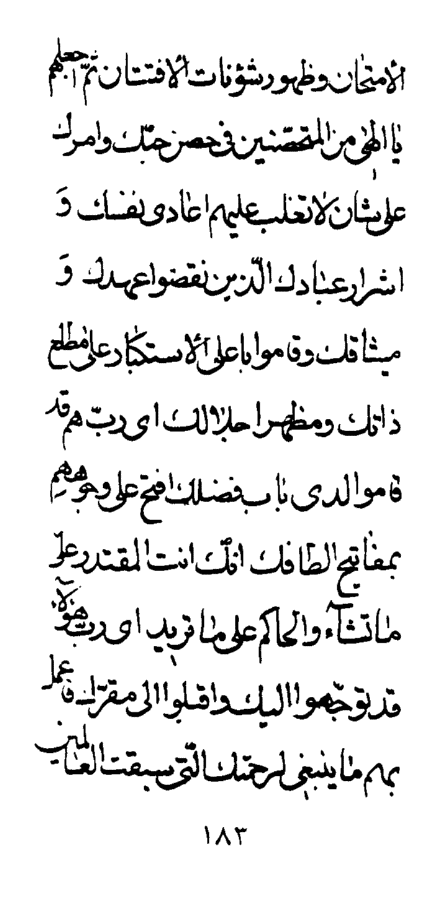 الامتحان وظهور شؤنات الافتتان ثمّ اجعلهم
يا الهی من المتحصّنین فی حصن حبّك وامرك
علی شان لا تغلب علیهم اعادی نفسك و
اشرار عبادك الّذین نقضوا عهدك و
میثاقك وقاموا باعلی الاستکبار علی مطلع
ذاتك ومظهر اجلالك ای ربّ هم قد
قاموا لدی باب فضلك افتح علی وجوههم
بمفاتیح الطافك انّك انت المقتدر علی
ما تشآء والحاکم علی ما ترید ای ربّ هؤلآء
قد توجّهوا الیك واقبلوا الی مقرّك فاعمل
بهم ما ینبغی لرحمتك الّتی سبقت العالمین
١٨٣